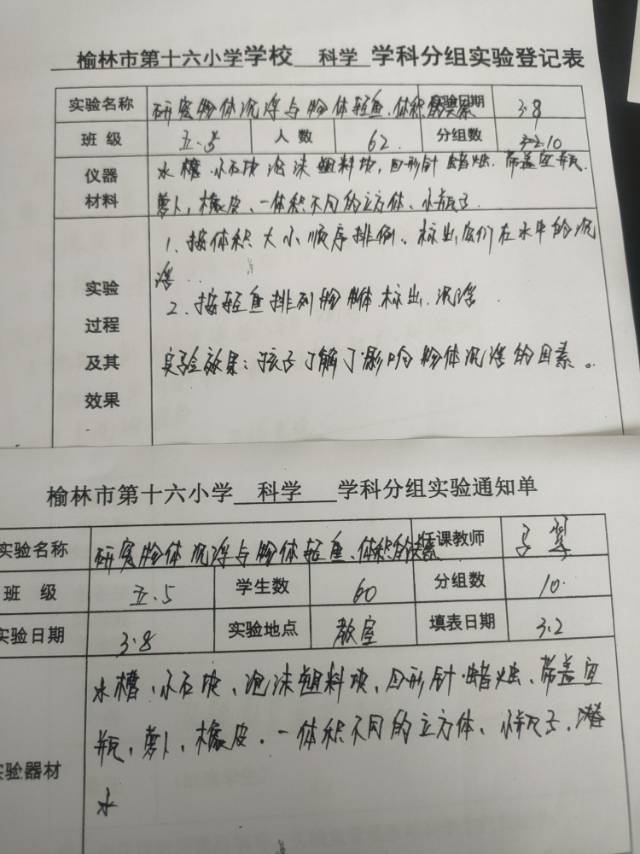 榆林市第十六小学学校 科学 学科分组实验登记表
实验名称 研究物体沉浮与物体轻重、体积的关系 实验日期 3.8
班 级 五.5 人 数 62 分组数 10
仪器材料 水槽、小石块 泡沫塑料块,回形针 蜡烛、带盖空瓶.
萝卜,橡皮、一体积不同的立方体、小瓶子.
实验过程及其效果 1、按体积大小顺序排例、标出,它们在水中的沉
浮.
2、按轻重排列物体 标出.沉浮.
实验效果:孩子了解了影响物体沉浮的因素。
榆林市第十六小学 科学 学科分组实验通知单
实验名称 研究物体沉浮与物体轻重、体积的关系 任课教师
班 级 五.5 学生数 60 分组数 10
实验日期 3.8 实验地点 教室 填表日期 3.2
实验器材 水槽、小石块、泡沫塑料块,回形针 蜡烛、带盖空
瓶,萝卜、橡皮.一体积不同的立方体、小瓶子.潜
水